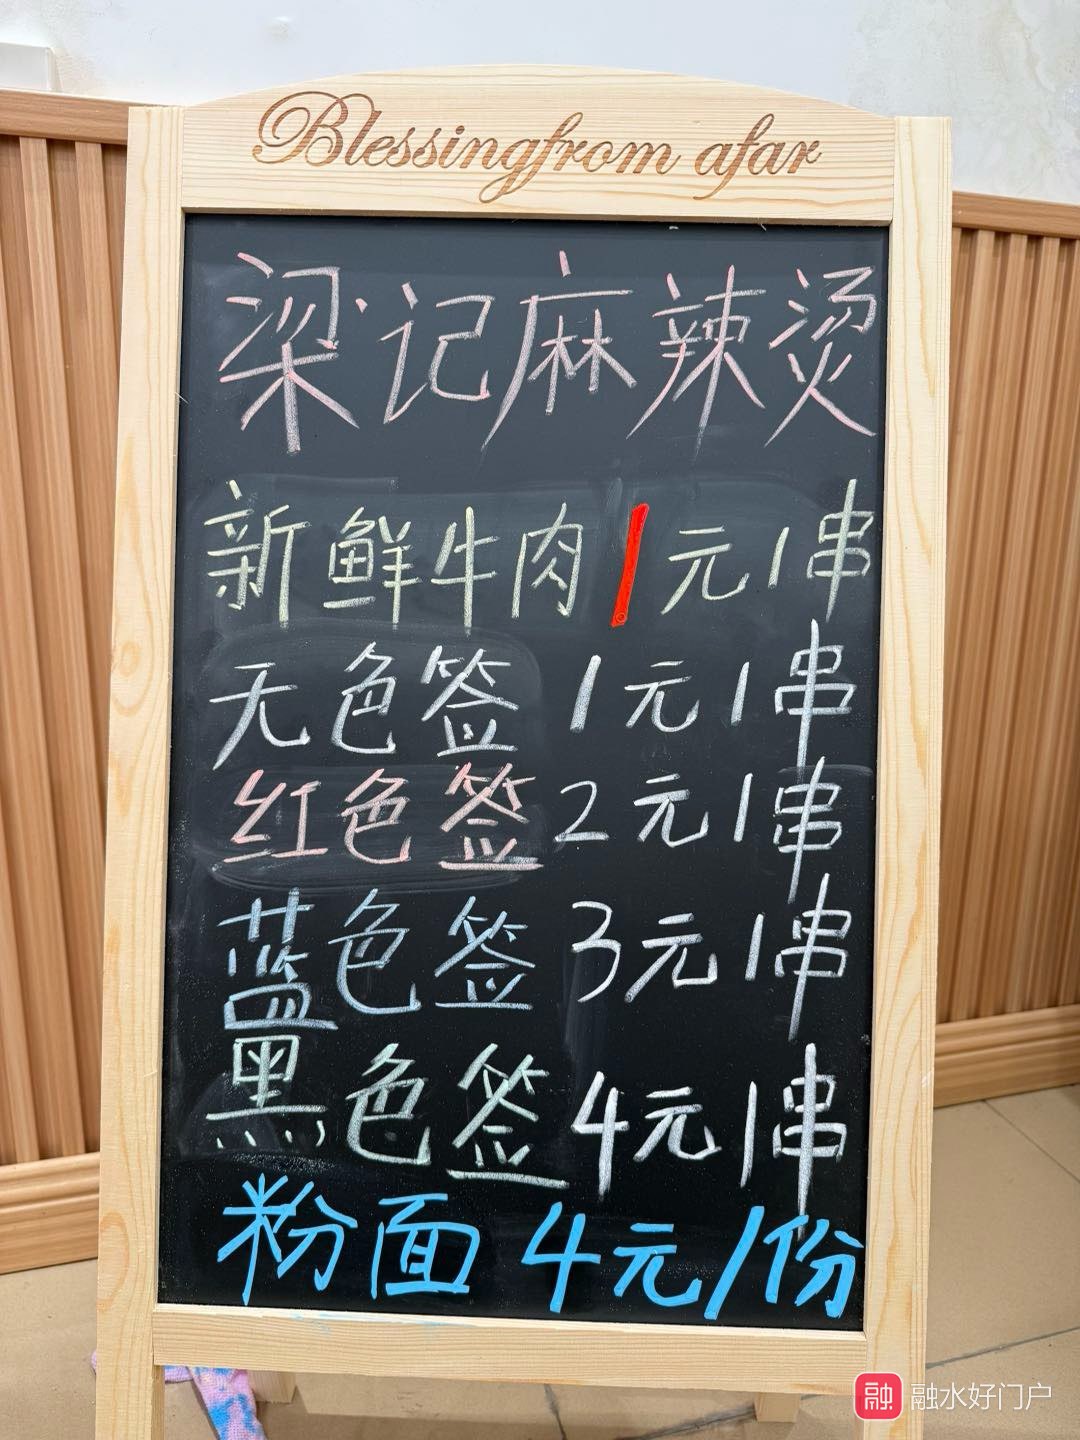 Blessingfrom afar
梁记麻辣烫
新鲜牛肉1元1串
无色签 1元1串
红色签2元1串
蓝色签 3元1串
黑色签4元1串
粉面 4元/份
融 融水好门户